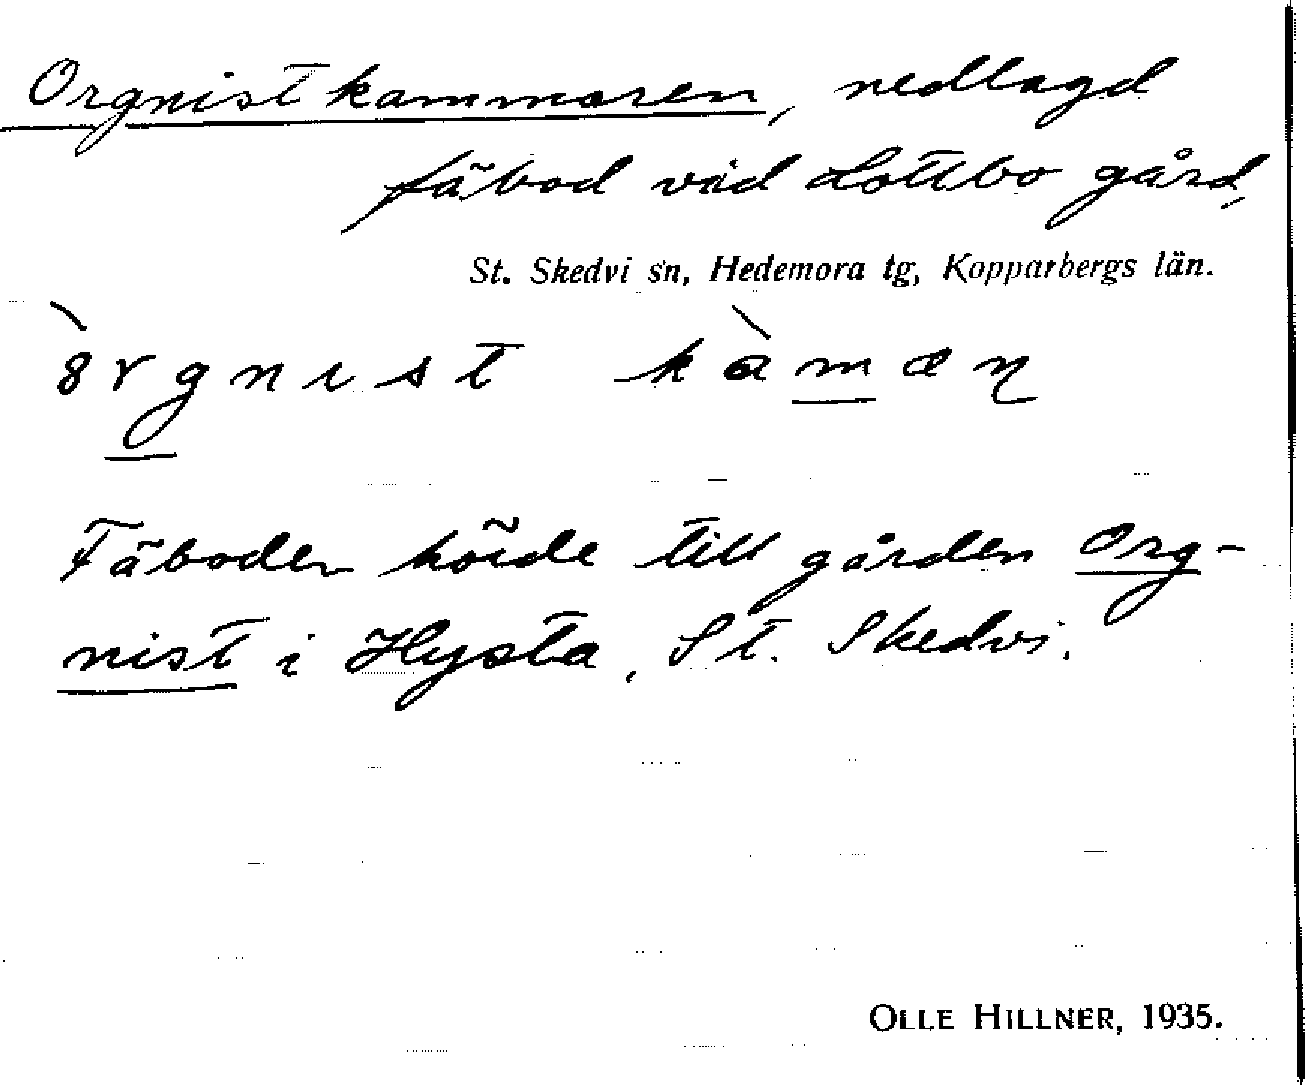 Orgnistkammaren, nedlagd
fäbod vid Lottbo gård,
St. Skedvi sn, Hedemora tg, Kopparbergs län.
òrgnɪst kàmæn
Fäboden hörde till gården Org-
nist i Hysta, St. Skedvi.
OLLE HILLNER, 1935.